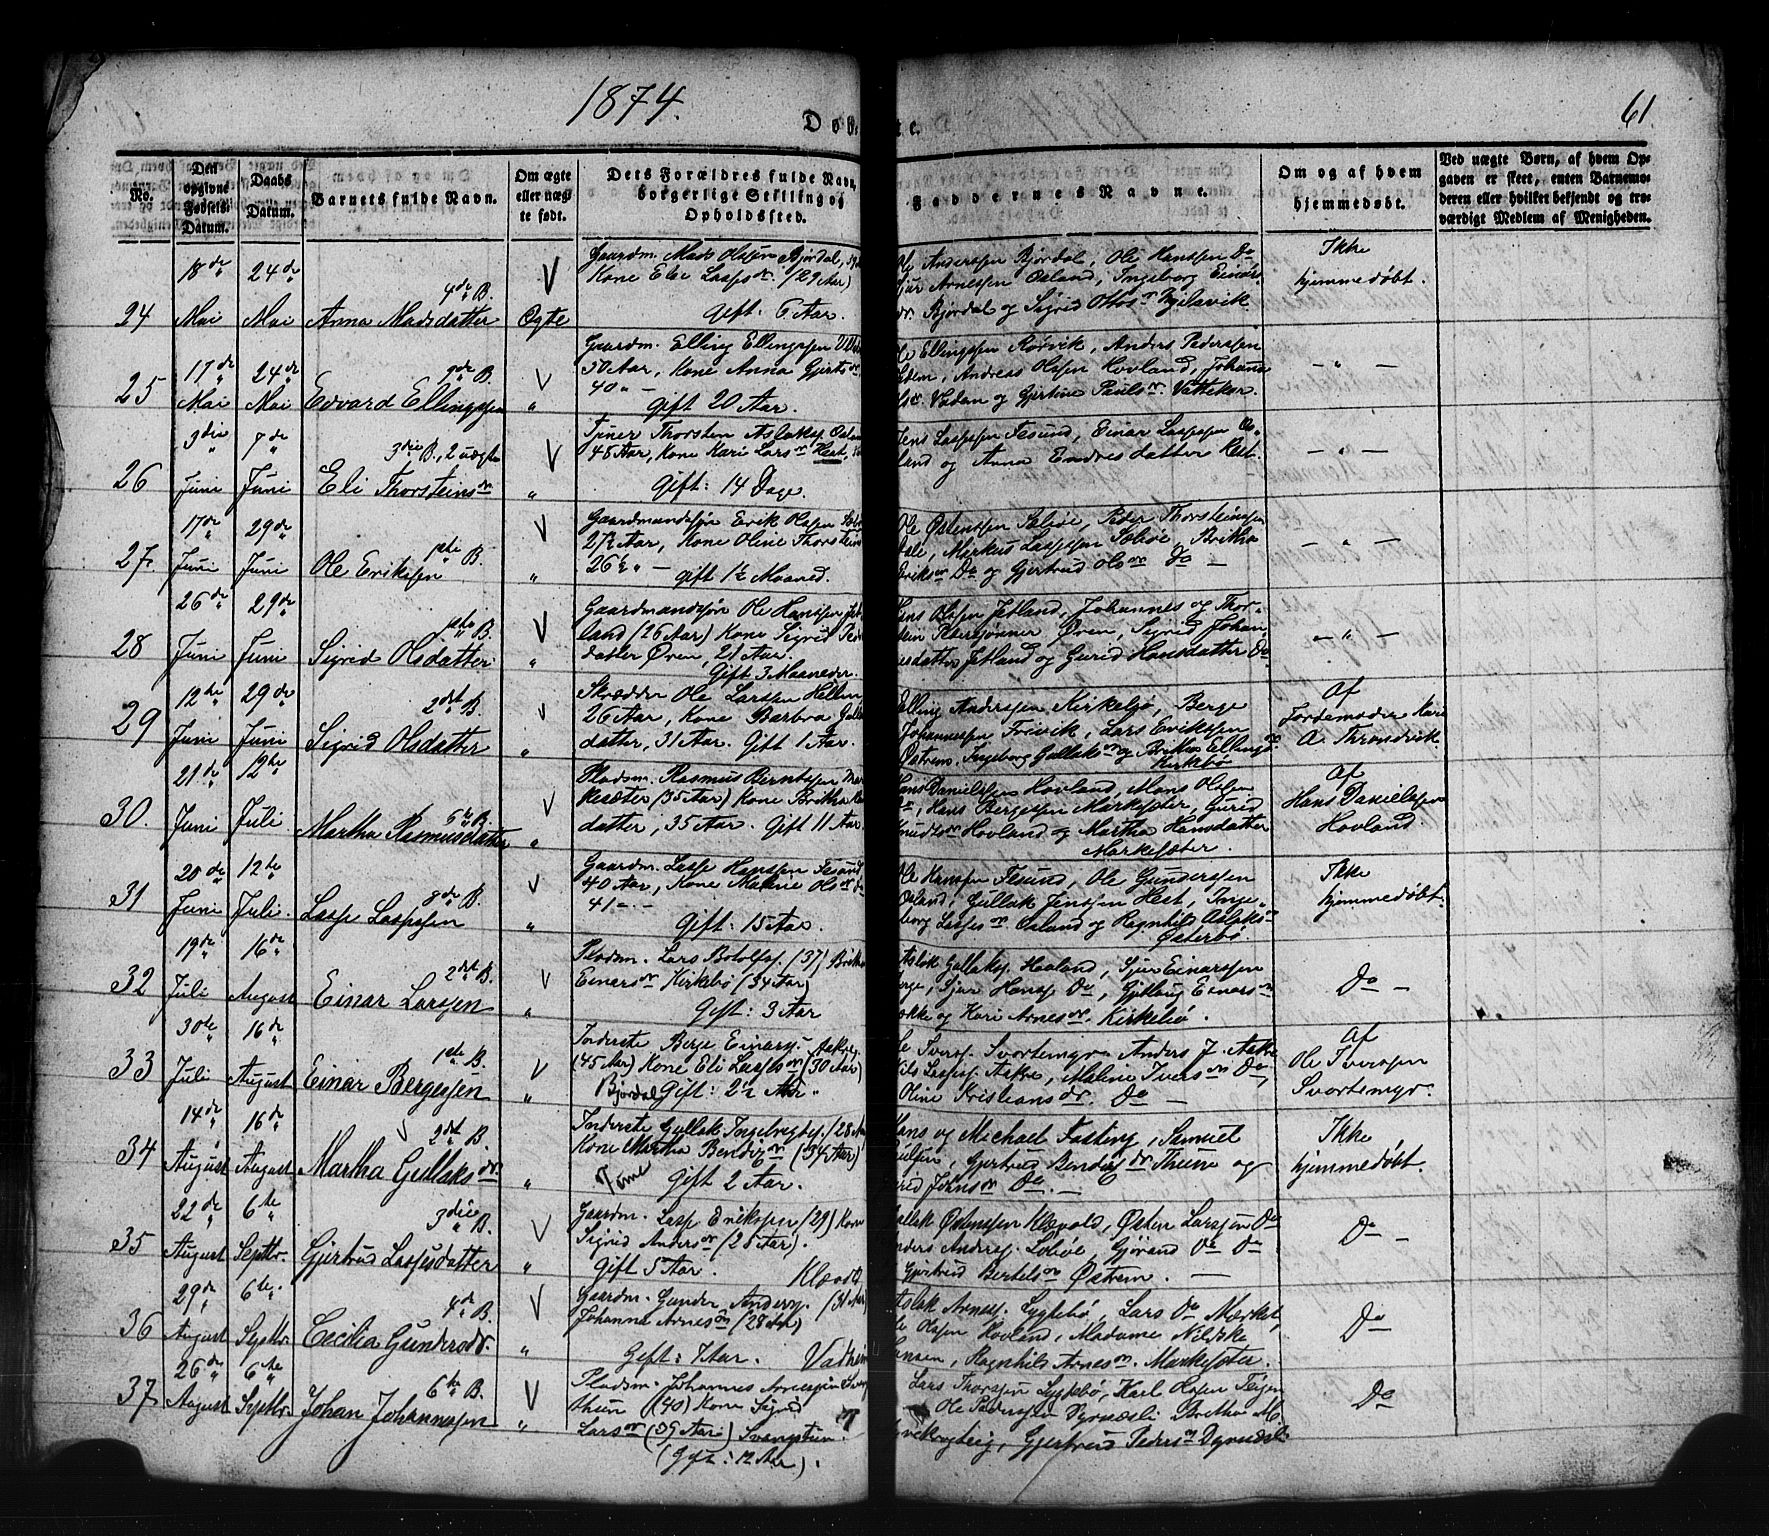 1874.
61.
Døb
te.
No.
Den opgivne Fødsels Datum.
Daabs Datum.
Barnets fulde Navn.
Om ægte eller uægte født.
Dets Forældres fulde Navn, borgerlige Stilling og Opholdssted.
Faddernes Navne.
Om og af hvem hjemmedøbt.
Ved uægte Børn, af hvem Opgaven er skeet, enten Barnemoderen eller hvilket bekjendt og troværdigt Medlem af Menigheden.
24 18de Mai 24de Mai 4de B. Anna Madsdatter Ægte
Gaardm. Mads Olssen Bjørdal,
Kone Eli Lasses dr (29 Aar)
Gift: 6 Aar.
Anderssen Bjørdal, Ole Hanssen Do
Arnessen Osland, Ingeborg Einars
dr Bjørdal og Sigrid Otto
Ikke hjemmedøbt.
25 17de Mai 24de Mai B. Edvard Ellingssen "
Gaardm. Elling Ellingssen
50 Aar, Kone Anna Gjerts dr
40 " -
Gift 20 Aar.
Ellingssen Rørvik, Anders Pederssen
Andreas Olssen Hovland, Johanna
Vadan og Gjertine Pauls dr Vattekar
- " -
26 3die Juni 7de Juni 3die B., 2 uægte Eli Thorsteins dr "
Tjener Thorsten Aslaks.
45 Aar, Kone Kari Lars dr Hest,
Gift: 14 Dage.
Jens Lassesen Fesund, Einar Lassesen Os-
land og Anna Endresdatter Hest.
- " -
27. 17de Juni 29de Juni 1ste B. Ole Erikssen "
Gaardmandssøn Erik Olssen
27½ Aar, Kone Oline Thorsteins
26½ " -
gift 1½ Maaned.
Ole Østenssen Solbøe, Peder Thorsteinssen
Markus Lassesen Solbøe, Britha
Eriks dr Do og Gjertrud Ols dr Do -
- " -
28 26de Juni 29de Juni 1ste B. Sigrid Olsdatter "
Gaardmandssøn Ole Hanssen
land (26 Aar) Kone Sigrid Peder
datter Øren, 21 Aar.
Gift 3 Maaneder.
Hans Olssen Jetland, Johannes og Thor-
stein Pederssønner Øren, Sigrid Johan-
nesdatter Jetland og Gurid Hansdatter Do
- " -
29 12te Juni 29de Juni 2det B. Sigrid Olsdatter "
Skrædder Ole Larssen Hellen
26 Aar, Kone Barbra Gullaks
datter, 31 Aar. Gift 1 Aar.
Elling Anderssen Kirkebø, Berge
Johannessen Trivik, Lars Erikssen
Østrem, Ingeborg Gullaks dr og Britha Ellings dr
Kirkebø
Af Jordemoder Kari A. Throndvik
30. 21de Juni 12te Juli 5te B. Martha Rasmusdatter "
Pladsm. Rasmus Berntssen Mar
kesæter (35 Aar) Kone Britha
datter, 35 Aar. Gift 11 Aar.
Hans Danielssen Hovland, Mons Olssen
Do, Hans Bergessen Markesæter, Gurid
Knuds dr Hovland og Martha Hansdatter
Markesæter.
Af Hans Danielssen Hovland.
31 20de Juni 12te Juli. 8de B. Lasse Lassesen "
Gaardm. Lasse Hanssen Fesund
40 Aar, Kone Malene Ols dr
41 - " -
Gift: 15 Aar.
Ole Hanssen Fesund, Ole Gunderssen
Osland, Gullak Jenssen Hest, Inge-
borg Lasses dr Osland og Ragnhild Aslaks dr
Østerbø.
Ikke hjemmedøbt.
32 19de Juli 16de August 2det B. Einar Larssen "
Pladsm. Lars Botolfs. (37) Britha
Einars dr Kirkebø (34 Aar)
Gift: 3 Aar
Aslak Gullaks. Hovland, Sjur Einarssen
Sjur Hanss. Do, Gjetlaug Einars dr
og Kari Arnes dr. Kirkebø.
Do -
33 30te Juli 16de August 1ste B. Einar Bergessen "
Inderste Berge Einars.
(45 Aar) Kone Eli Lasses dr (30 Aar)
Bjørdal Gift: 2½ Aar.
Ole Ivers. Svortemyr Anders J. Aakre
Nils Lasses. Aakre, Malene Ivers dr Do,
Oline Kristians dr. Do -
Af Ole Iverssen Svortemyr.
34 14de August 16de August 2det B. Martha Gullaks dr "
Inderste Gullak Ingebrigts. (28 Aar
Kone Martha Bendix dr (34 Aar)
Gift 2 Aar.
Hans og Michael Fasting, Samuel
Gjertrud Bendix dr Thune og
Johns dr Do. -
Ikke hjemmedøbt.
35 22de August 6te Septbr. 3die B. Gjertrud Lassesdatter "
Gaardm. Lasse Erikssen (29) Kone
Sigrid Anders dr (28 Aar).
Gift 5 Aar.
Gullak Østenssen Klævold, Østen Larssen Do
Anders Anderss. Solbøe, Gjørand Do Do
Gjertrud Bertels dr Østrem. -
Do -
36 29de August 6te Septbr. 4de B. Cecilia Gundersdr. "
Gaardm. Gunder Anders. (31 Aar
Johanna Arnes dr (28 Aar)
Gift: 7 Aar. Vadheim
Aslak Arness. Lygtebø, Lars Do Mærket,
Ole Olssen Hovland, Madame Nilske
Hansen, Ragnhild Arnes dr. Markesæter.
Do -
37 26de August 6te Septbr. 6te B. Johan Johannessen "
Pladsm. Johannes Arnessen
(40) Kone Sigrid
Lars dr (39 Aar)
(Gift: 12 Aar).
Lars Thorssen Lygtebø, Karl Olssen Teigen
Ole Pederssen Dyrnæsli Britha M.
Gjertrud Peders dr Dyrnæsli
Do -